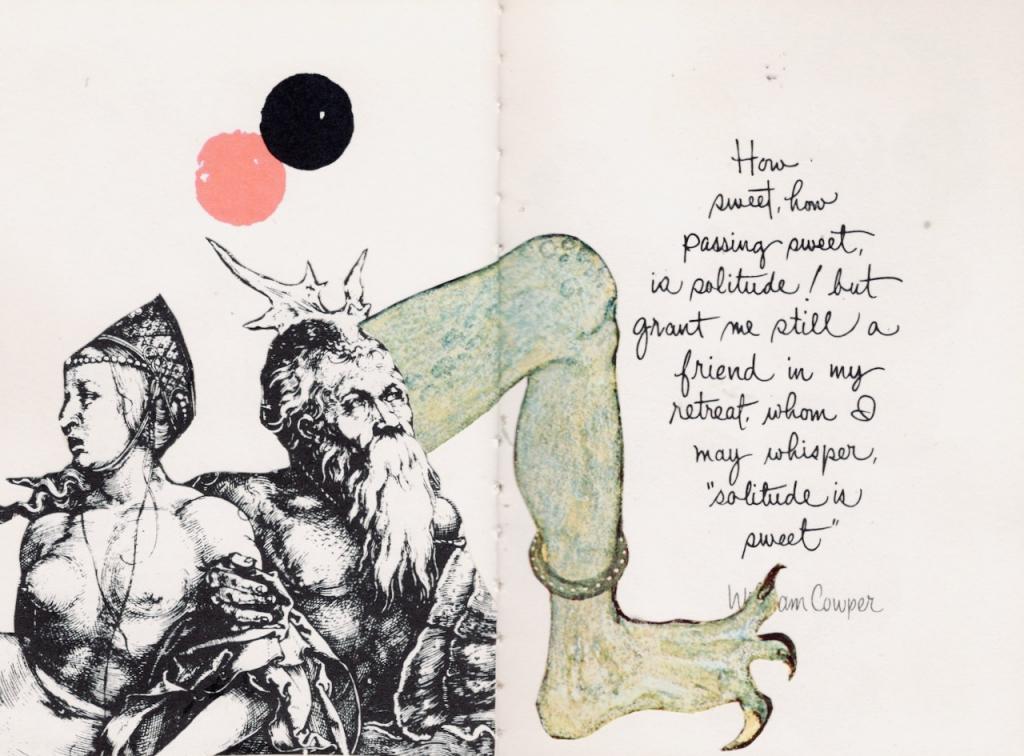 How
sweet, how
passing sweet,
is solitude! but
grant me still a
friend in my
retreat, whom I
may whisper,
"solitude is
sweet"
William Cowper